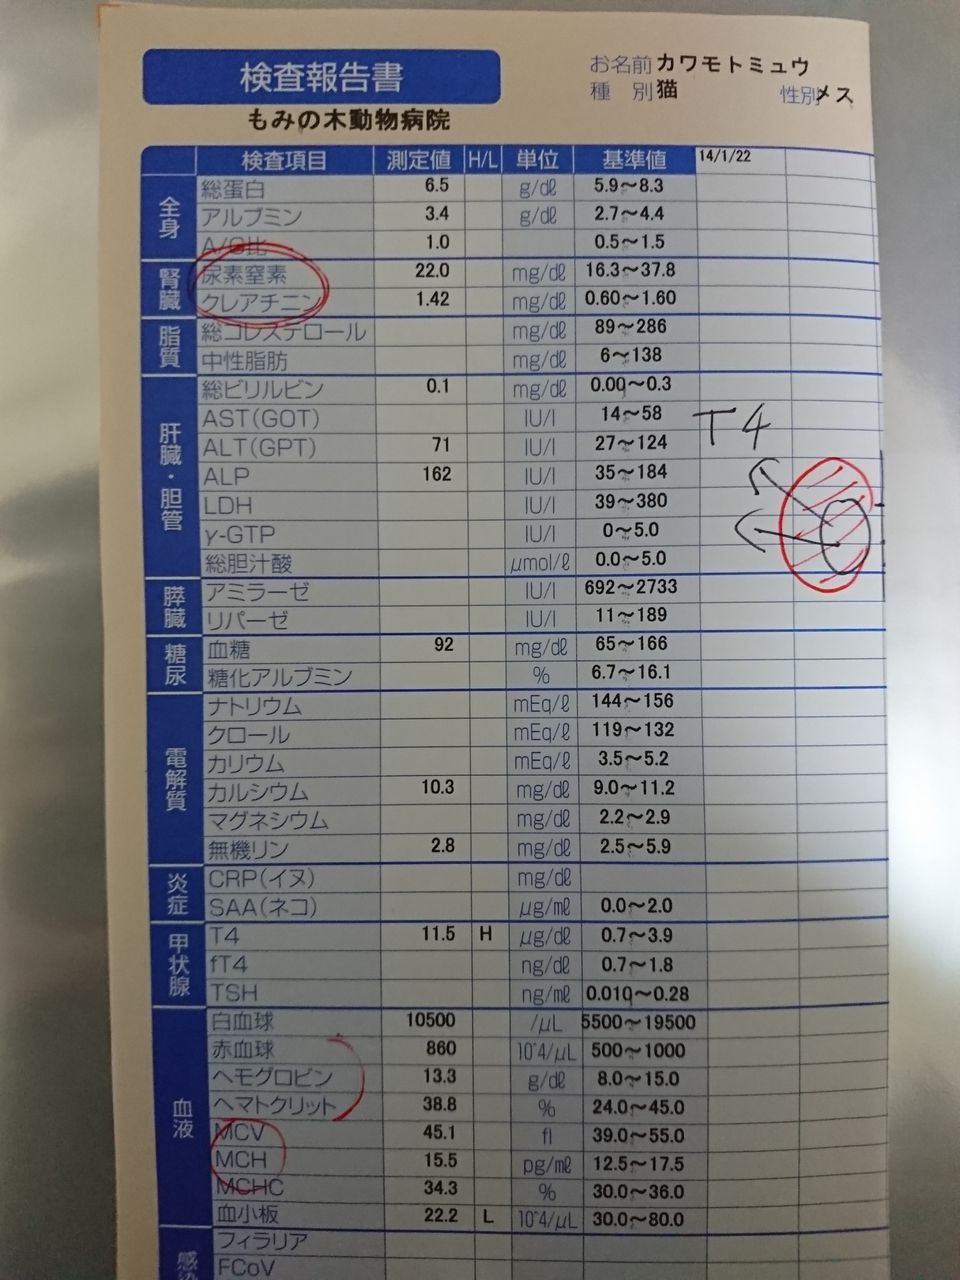 検査報告書
もみの木動物病院
お名前 カワモトミュウ
種 別 猫 性別 メス
検査項目 測定値 H/L 単位 基準値 14/1/22
全身
総蛋白 6.5 g/dℓ 5.9～8.3
アルブミン 3.4 g/dℓ 2.7～4.4
A/G比 1.0 0.5～1.5
腎臓
尿素窒素 22.0 mg/dℓ 16.3～37.8
クレアチニン 1.42 mg/dℓ 0.60～1.60
脂質
総コレステロール mg/dℓ 89～286
中性脂肪 mg/dℓ 6～138
肝臓・胆管
総ビリルビン 0.1 mg/dℓ 0.00～0.3
AST(GOT) IU/l 14～58
T4
ALT(GPT) 71 IU/l 27～124
ALP 162 IU/l 35～184
LDH IU/l 39～380
γ-GTP IU/l 0～5.0
総胆汁酸 μmol/ℓ 0.0～5.0
膵臓
アミラーゼ IU/l 692～2733
リパーゼ IU/l 11～189
糖尿
血糖 92 mg/dℓ 65～166
糖化アルブミン % 6.7～16.1
電解質
ナトリウム mEq/ℓ 144～156
クロール mEq/ℓ 119～132
カリウム mEq/ℓ 3.5～5.2
カルシウム 10.3 mg/dℓ 9.0～11.2
マグネシウム mg/dℓ 2.2～2.9
無機リン 2.8 mg/dℓ 2.5～5.9
炎症
CRP(イヌ) mg/dℓ
SAA(ネコ) μg/mℓ 0.0～2.0
甲状腺
T4 11.5 H μg/dℓ 0.7～3.9
fT4 ng/dℓ 0.7～1.8
TSH ng/mℓ 0.010～0.28
血液
白血球 10500 /μL 5500～19500
赤血球 860 10^4/μL 500～1000
ヘモグロビン 13.3 g/dℓ 8.0～15.0
ヘマトクリット 38.8 % 24.0～45.0
MCV 45.1 fl 39.0～55.0
MCH 15.5 pg/mℓ 12.5～17.5
MCHC 34.3 % 30.0～36.0
血小板 22.2 L 10^4/μL 30.0～80.0
感染
フィラリア
FCoV